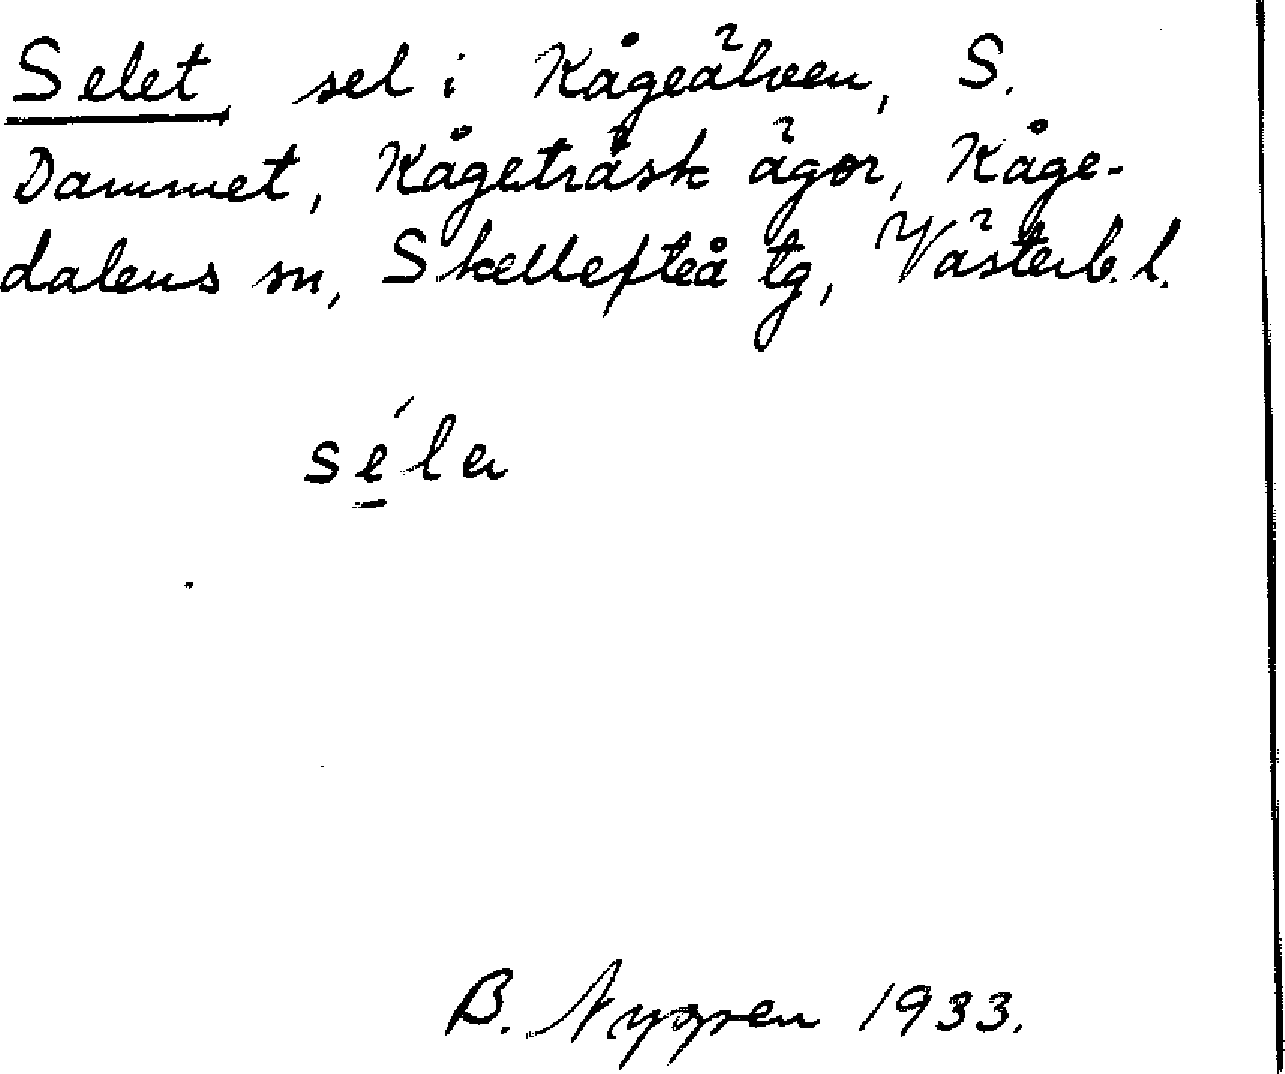 Selet, sel i Kågeälven, S.
Dammet, Kågeträsk ägor, Kåge-
dalens sn, Skellefteå tg, Västerb. l.
B. Nygren 1933.